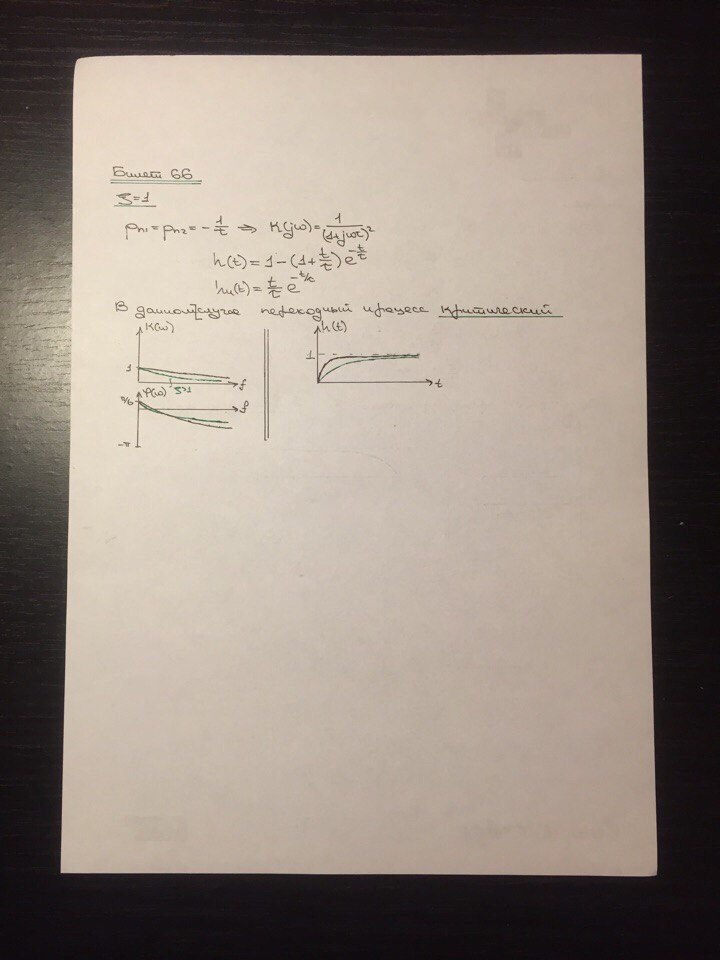 Билет 66
ζ=1
pп1 = pп2 = -1/τ ⇒ K(jω) = 1/(1+jωτ)²
h(t) = 1-(1+t/τ)e^(-t/τ)
hм(t) = t/τ e^(-t/τ)
В данном случае переходный процесс критический
K(ω)
1
ζ>1
f
φ(ω)
f
-π
h(t)
1
t